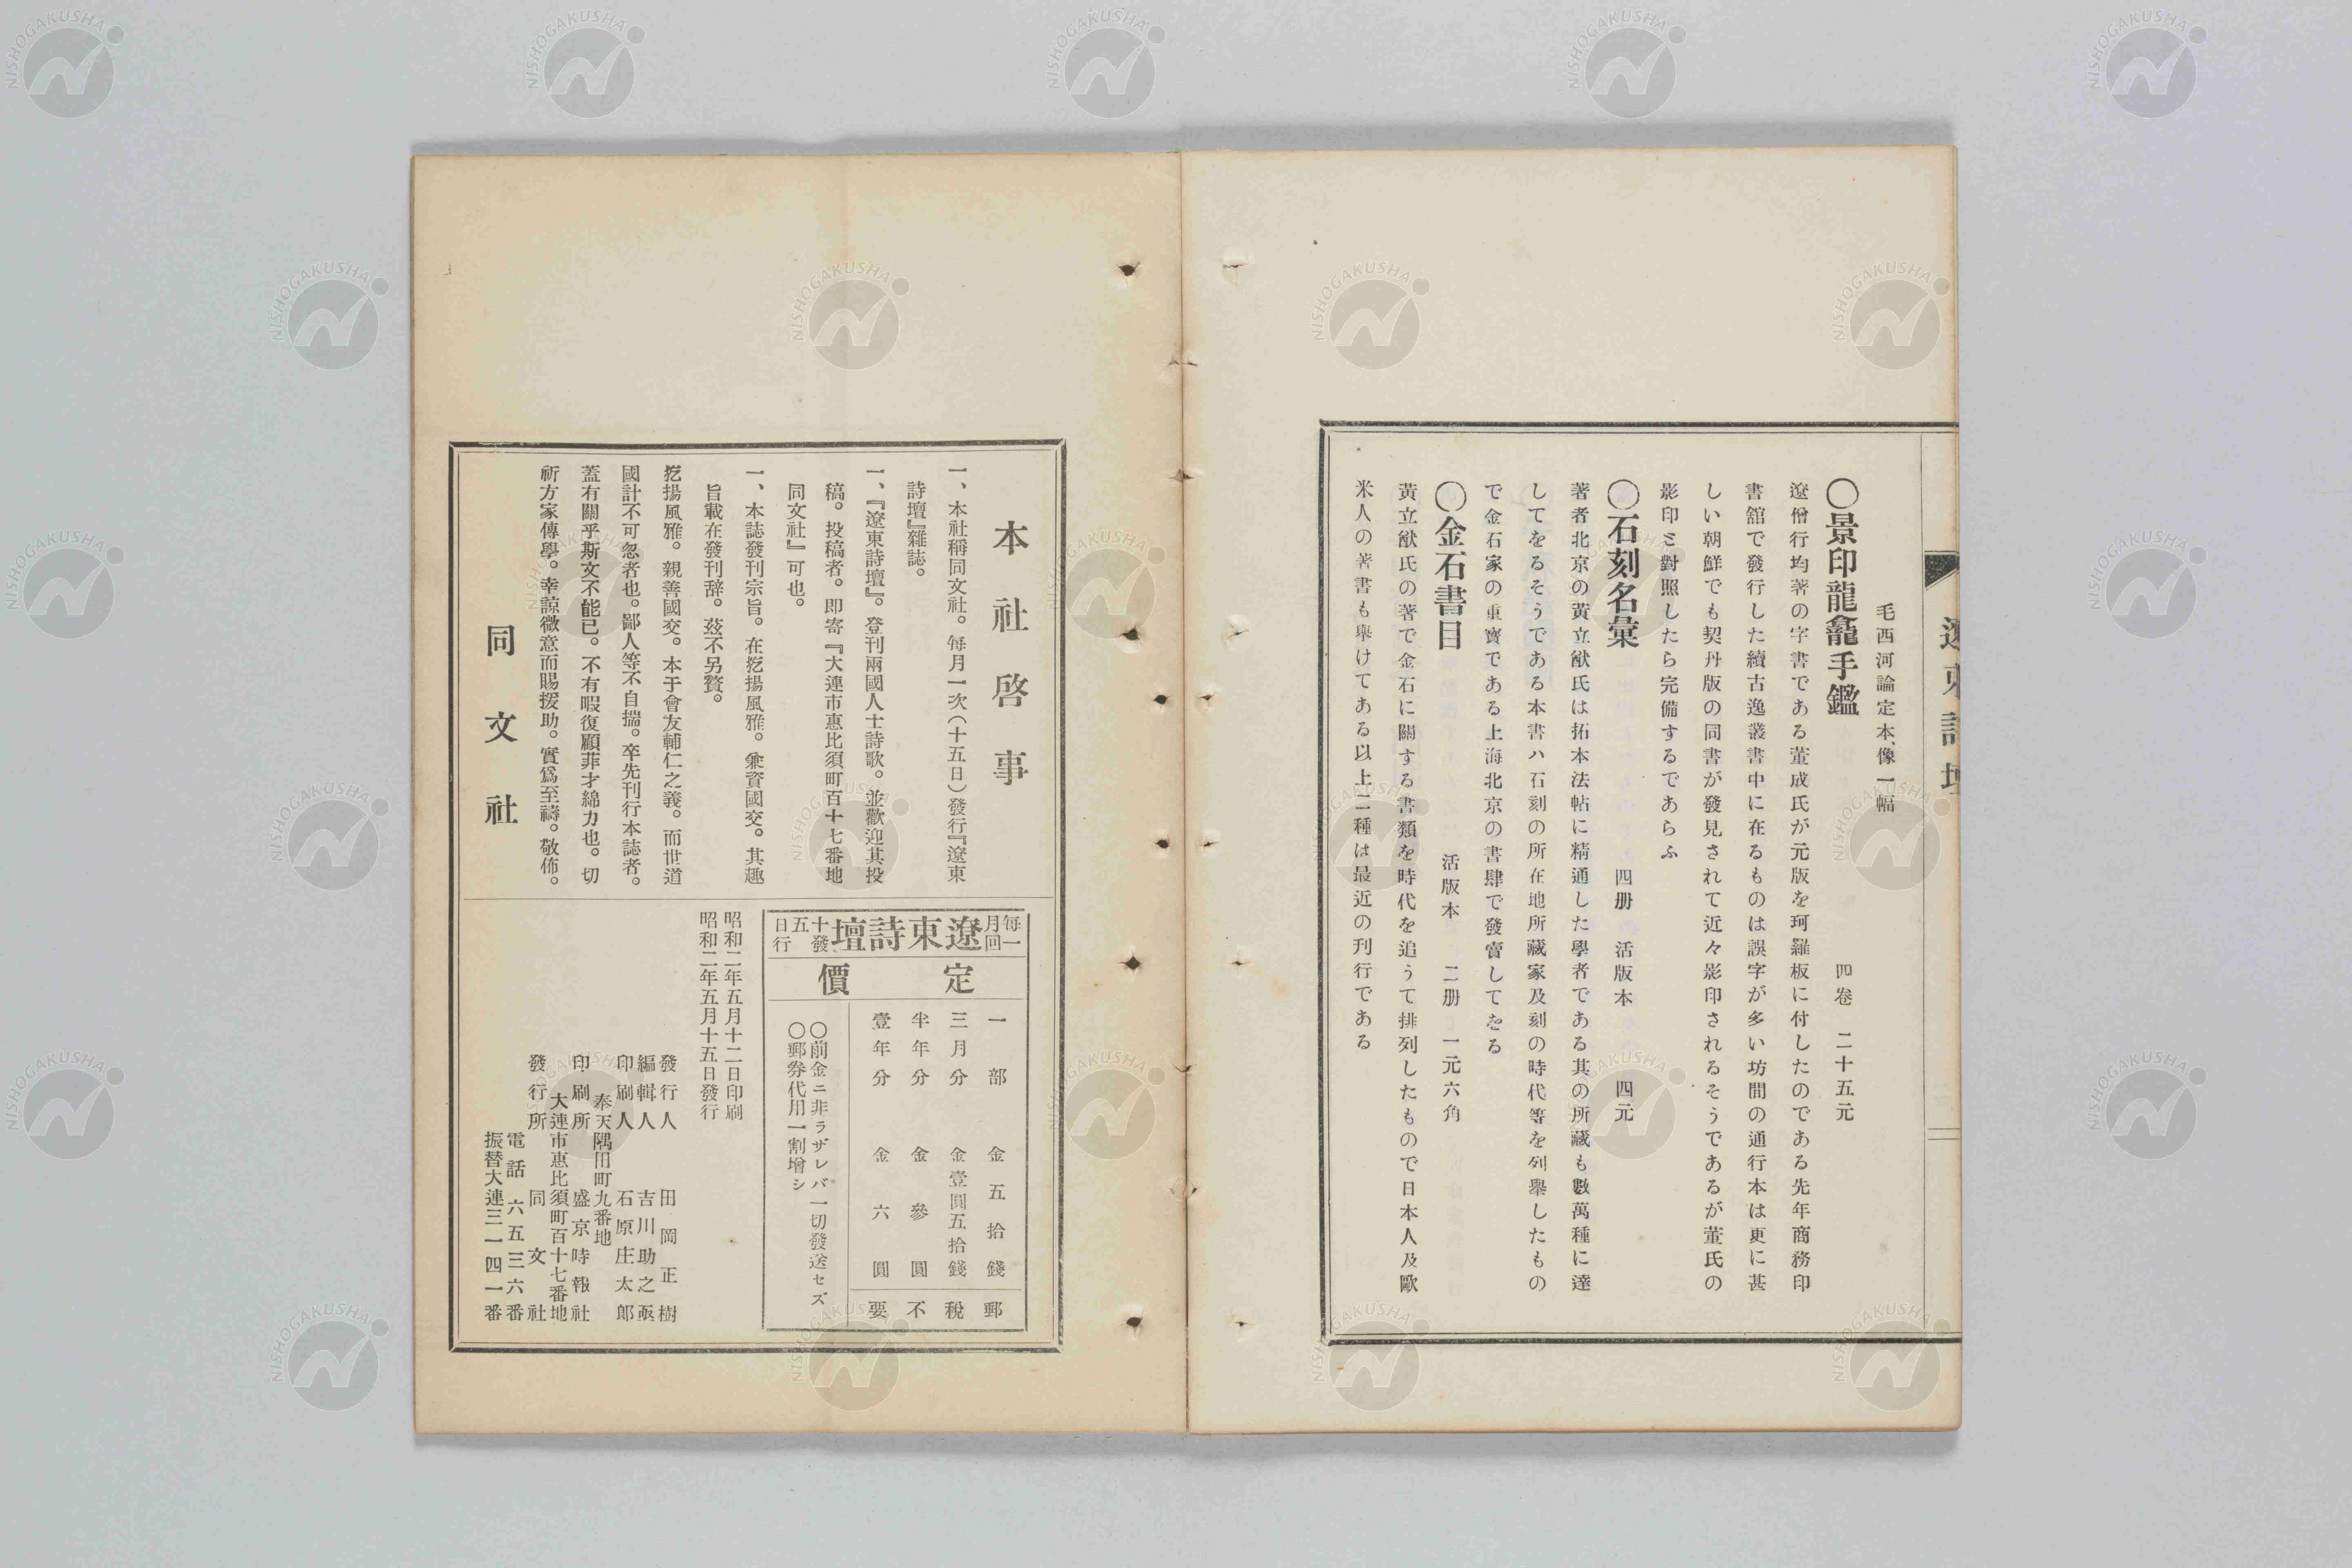 遼東詩壇
毛西河論定本、像一幅
〇景印龍龕手鑑　四卷　二十五元
遼僧行均著の字書である董成氏が元版を珂羅板に付したのである先年商務印
書舘で發行した續古逸叢書中に在るものは誤字が多い坊間の通行本は更に甚
しい朝鮮でも契丹版の同書が發見されて近々影印されるそうであるが董氏の
影印ミ對照したら完備するであらふ
〇石刻名彙　四册　活版本　四元
著者北京の黄立猷氏は拓本法帖に精通した學者である其の所藏も數萬種に達
してをるそうである本書ハ石刻の所在地所藏家及刻の時代等を列擧したもの
で金石家の重寶である上海北京の書肆で發賣してをる
〇金石書目　活版本　二册　一元六角
黃立猷氏の著で金石に關する書類を時代を追うて排列したもので日本人及歐
米人の著書も擧けてある以上二種は最近の刊行である
本社啓事
一、本社稱同文社。每月一次（十五日）發行『遼東
詩壇』雜誌。
一、『遼東詩壇』。登刊兩國人士詩歌。並歡迎其投
稿。投稿者。即寄『大連市惠比須町百十七番地
同文社』可也。
一、本誌發刊宗旨。在挖揚風雅。兼資國交。其趣
旨載在發刊辞。茲不另贅。
挖揚風雅。親善國交。本于會友輔仁之義。而世道
國計不可忽者也。鄙人等不自揣。卒先刊行本誌者。
蓋有關乎斯文不能已。不有暇復顧菲才綿力也。切
祈方家傳學。幸諒微意而賜援助。實爲至禱。敬佈。
同文社
每月一回
遼東詩壇
十五日發行
定價
一部　金五拾錢　郵
三月分　金壹圓五拾錢　稅
半年分　金參圓　不
壹年分　金六圓　要
〇前金ニ非ラザレバ一切發送セズ
〇郵券代用一割增シ
昭和二年五月十二日印刷
昭和二年五月十五日發行
發行人　田岡正樹
編輯人　吉川助之亟
印刷人　石原庄太郎
奉天隅田町九番地
印刷所　盛京時報社
大連市惠比須町百十七番地
發行所　同文社
電話六五三六番
振替大連三一四一番
NISHOGAKUSHA